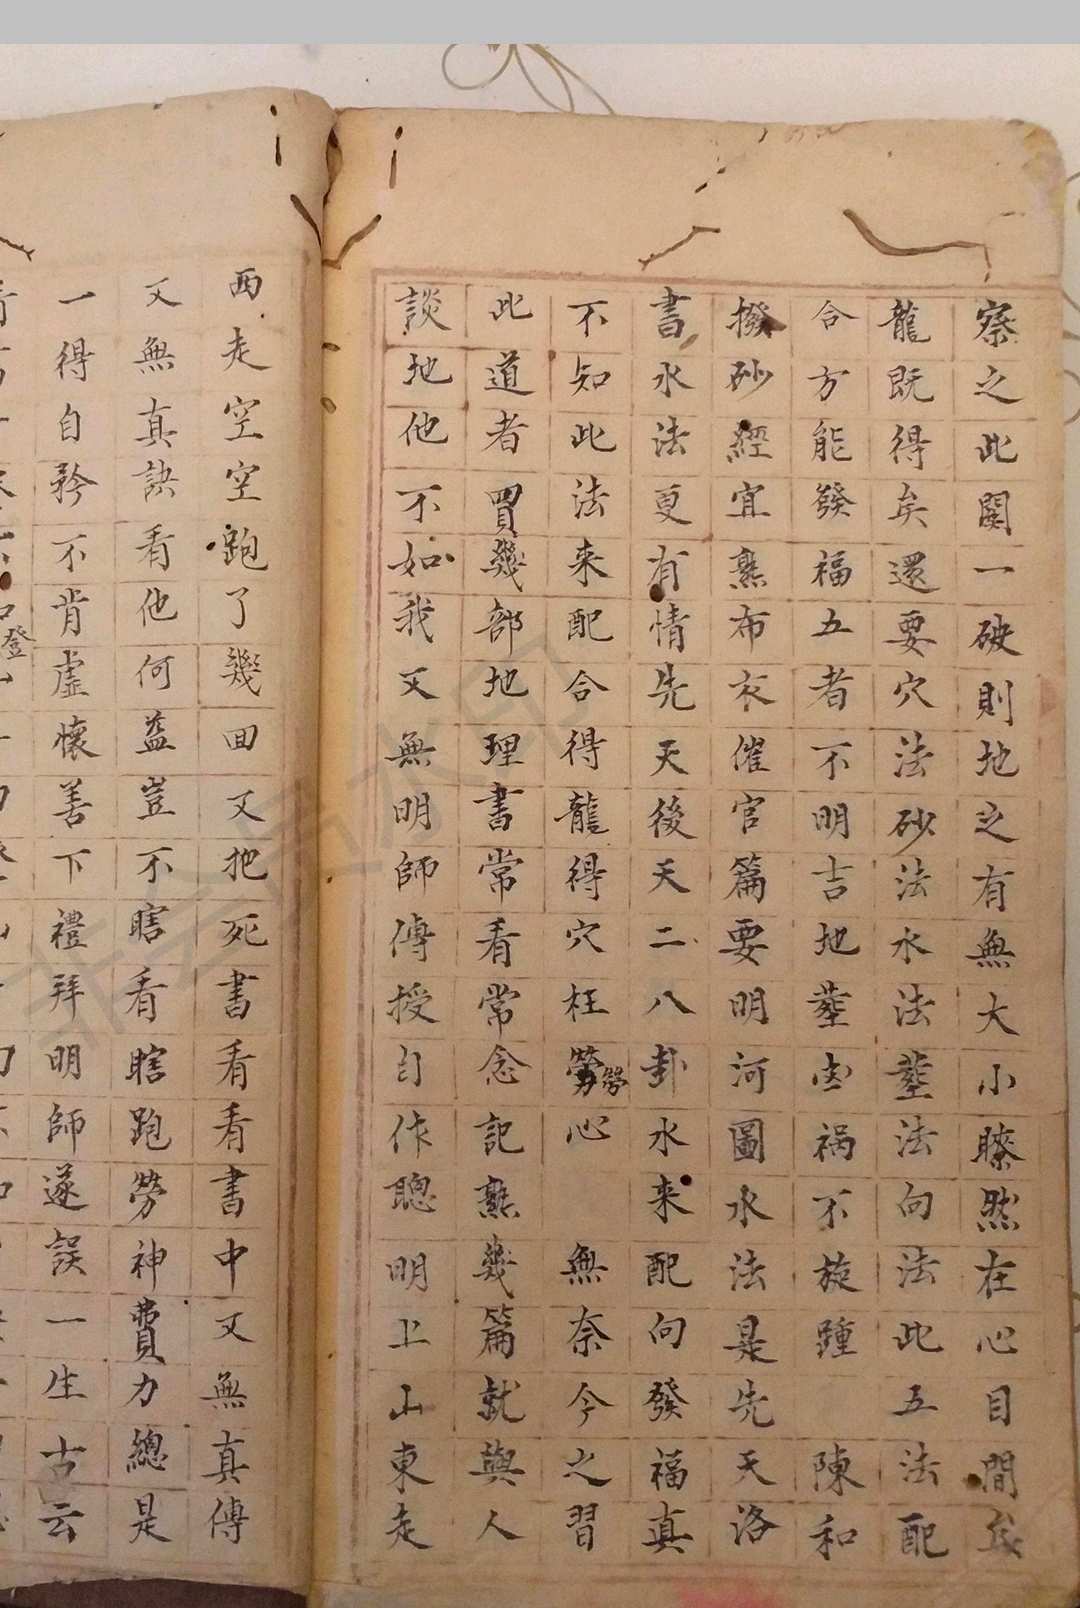 察之此關一破則地之有無大小瞭然在心目間矣
龍既得矣還要穴法砂法水法塟法向法此五法配
合方能發福五者不明吉地塟凶禍不旋踵 陳和
撥砂經宜熟布衣催官篇要明河圖水法是先天洛
書水法更有情先天後天二八卦水来配向發福真
不知此法来配合得龍得穴枉勞心 無奈今之習
此道者買幾部地理書常看常念記熟幾篇就與人
談地他不如我又無明師傳授自作聰明上山東走
西走空空跑了幾回又把死書看看書中又無真傳
又無真訣看他何益豈不瞎看瞎跑勞神費力總是
一得自矜不肯虛懷善下禮拜明師遂誤一生古云